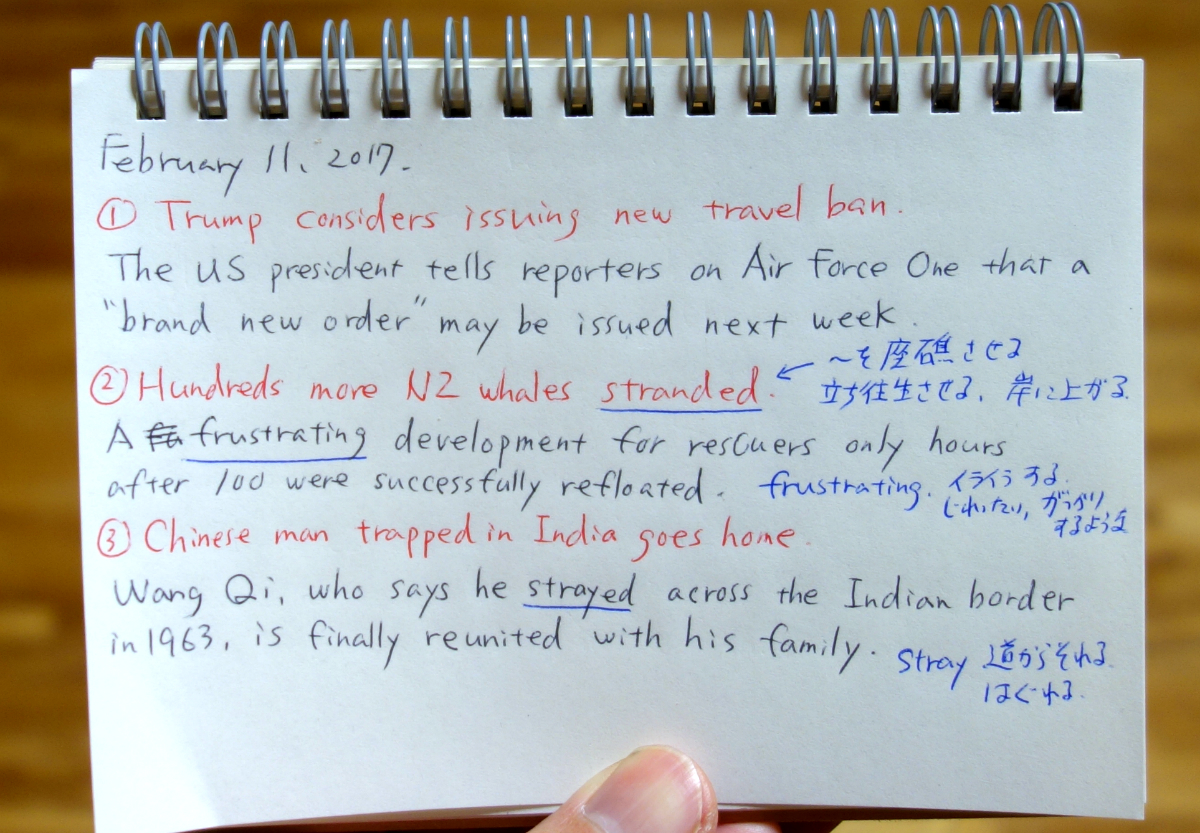 February 11, 2017.
① Trump considers issuing new travel ban.
The US president tells reporters on Air Force One that a
"brand new order" may be issued next week.
② Hundreds more NZ whales stranded. ← 〜を座礁させる
立ち往生させる、岸に上がる
A frustrating development for rescuers only hours
after 100 were successfully refloated. frustrating. イライラする.
じれったい, がっかり
するような
③ Chinese man trapped in India goes home.
Wang Qi, who says he strayed across the Indian border
in 1963, is finally reunited with his family.
stray 道からそれる
はぐれる.